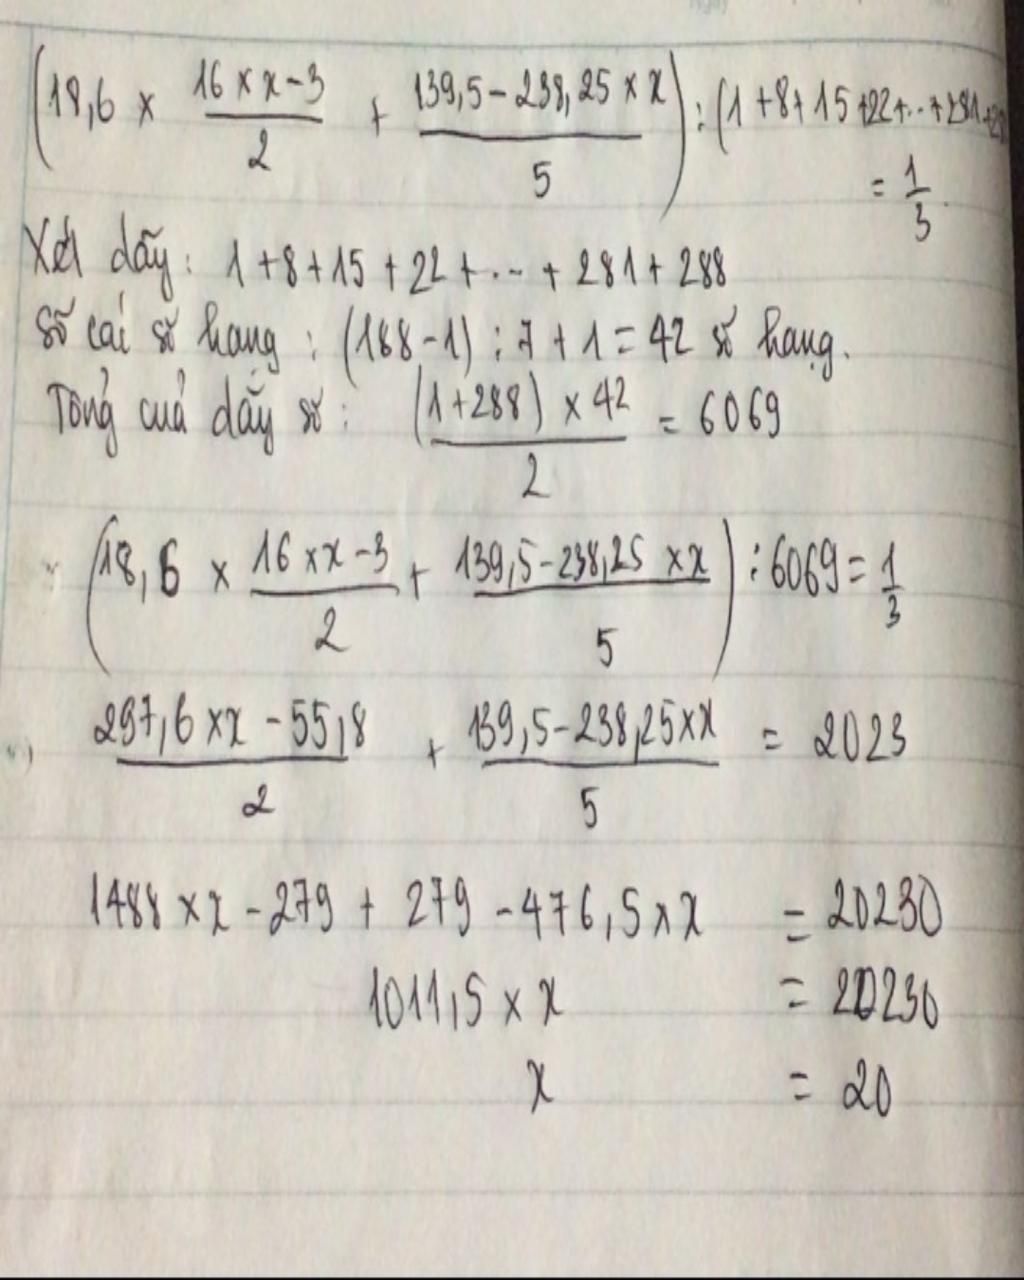 (18,6 × (16 × x - 3)/2 + (139,5 - 238,25 × x)/5) : (1 + 8 + 15 + 22 + ... + 281 +
= 1/3
Xét dãy: 1 + 8 + 15 + 22 + ... + 281 + 288
Số các số hạng : (188 - 1) : 7 + 1 = 42 số hạng.
Tổng của dãy số : ((1 + 288) × 42)/2 = 6069
(18,6 × (16 × x - 3)/2 + (139,5 - 238,25 × x)/5) : 6069 = 1/3
(297,6 × x - 55,8)/2 + (139,5 - 238,25 × x)/5 = 2023
1488 × x - 279 + 279 - 476,5 × x = 20230
1011,5 × x = 20230
x = 20